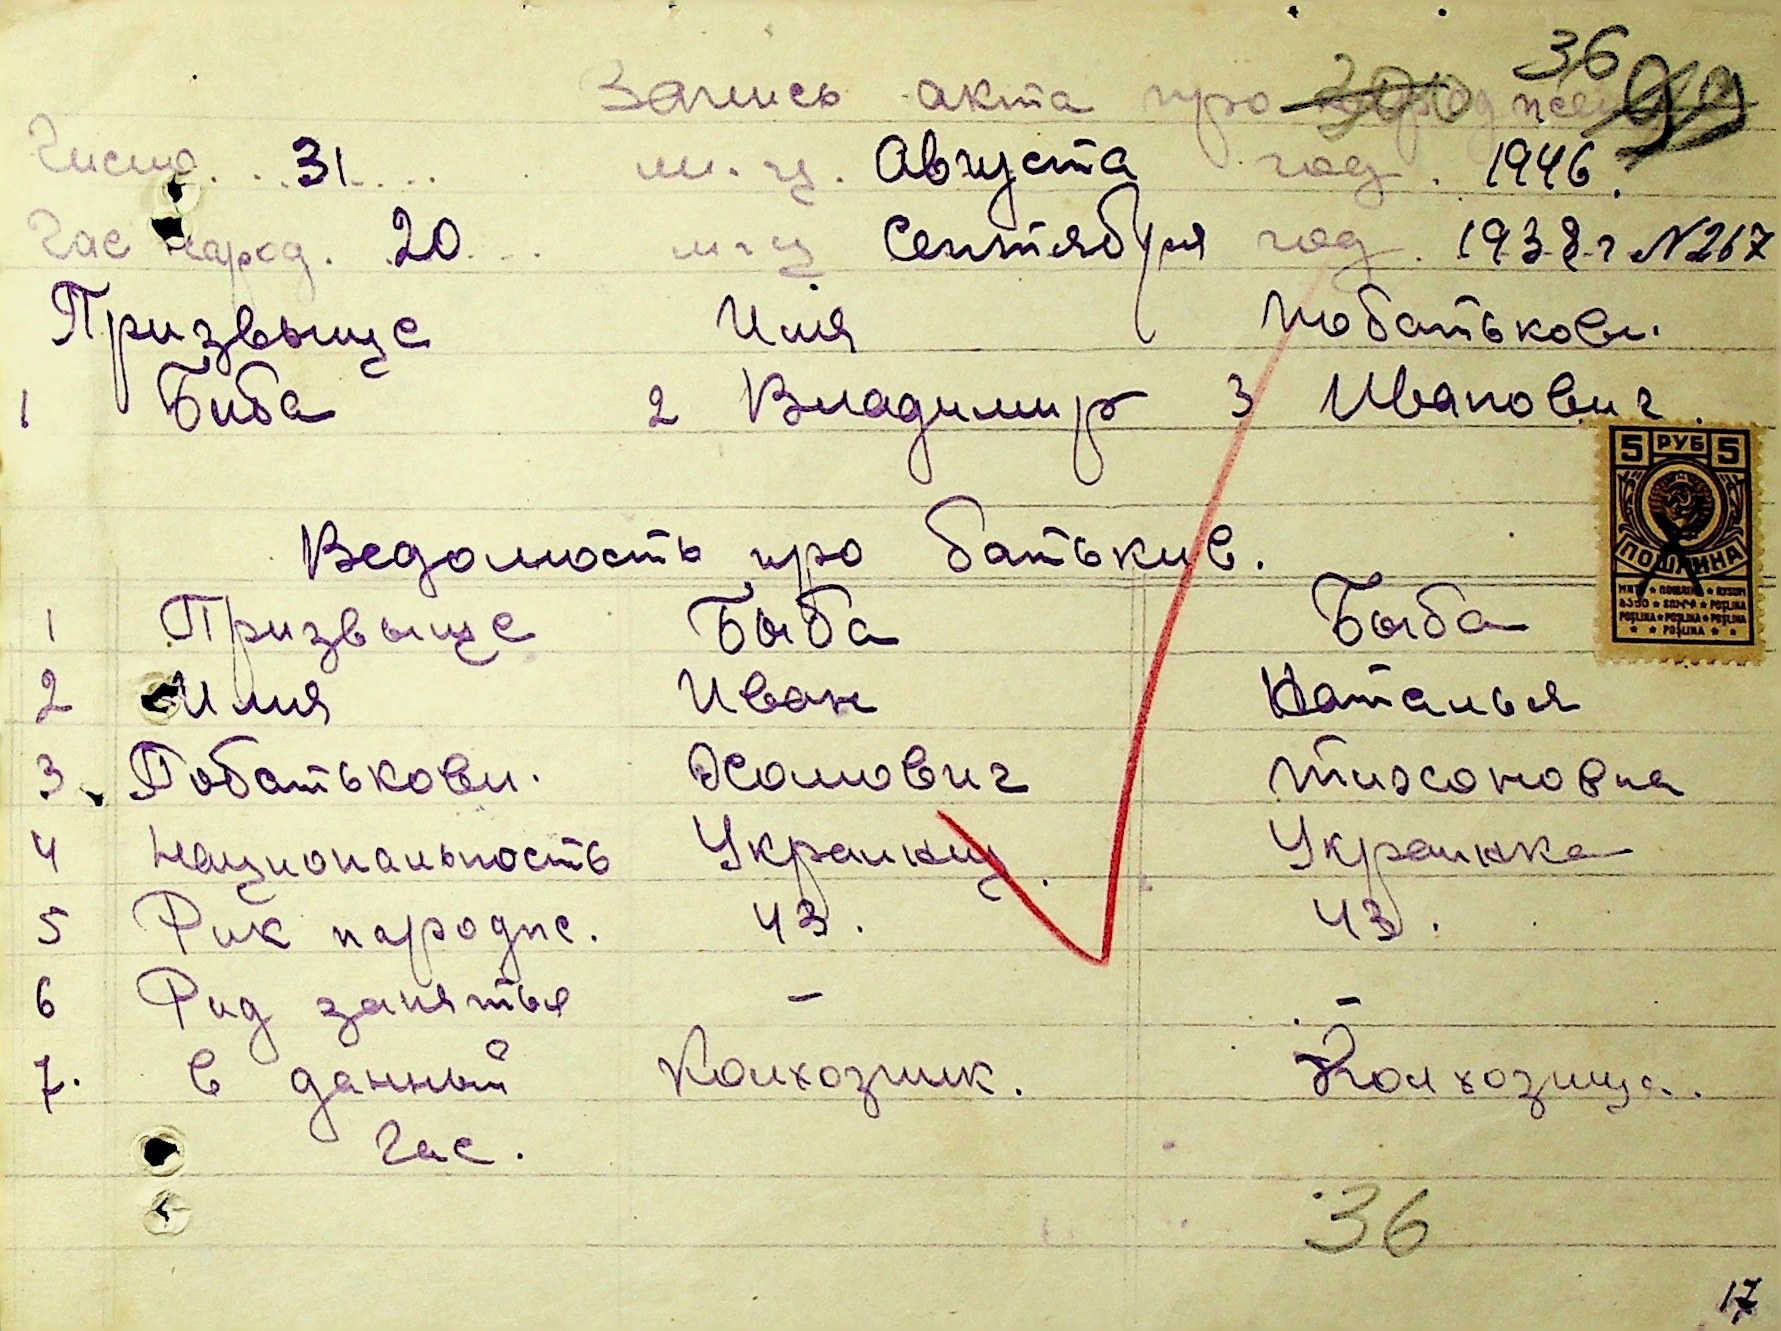 36
Запись акта про народжен 99
Число... 31... м.ц. Августа год. 1946.
Час народ. 20... м-ц Сентября год. 1938 г №267
Призвыще Имя Побатькови.
1 Биба 2 Владимир 3 Иванович.
5 РУБ 5
ПОШЛИНА
Ведомость про батькив.
1 Призвыще Быба Быба
2 Имя Иван Наталья
3 Побатькови. Хомович Тихоновна
4 Национальность Украинец. Украинка
5 Рик народже. 43. 43.
6 Рид занятья - -
7. в данный Колхозник. Колхозница.
час.
36
17